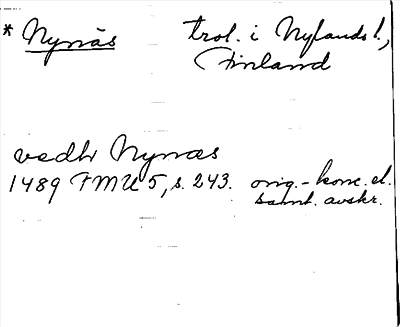 * Nynäs trol. i Nylands l.,
Finland
vedh Nynæs
1489 FMU 5, s. 243. orig.-konc. el.
samt. avskr.